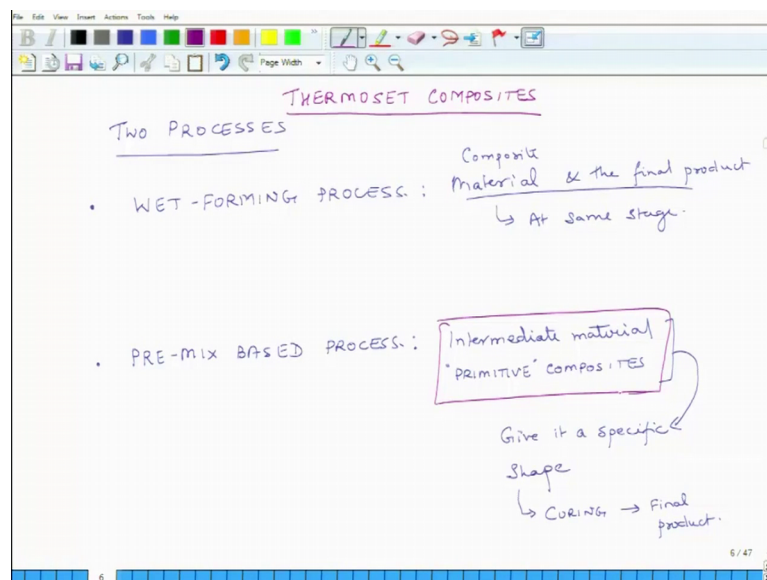 File Edit View Insert Actions Tools Help
B I
Page Width
THERMOSET COMPOSITES
TWO PROCESSES
• WET-FORMING PROCESS. : Composite
Material & the final product
↳ At same stage.
• PRE-MIX BASED PROCESS. : Intermediate material
"PRIMITIVE" COMPOSITES
Give it a specific
Shape
↳ CURING → Final
product.
6 / 47
6